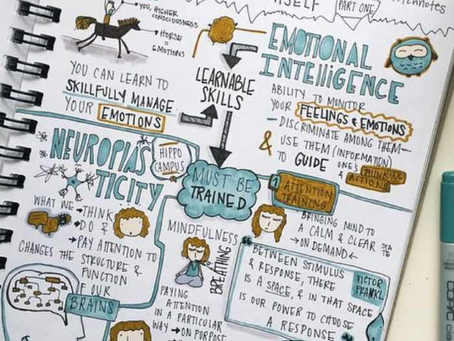 YOU, HIGHER
CONSCIOUSNESS
HORSE =
EMOTIONS
PART ONE
YOU CAN LEARN TO
SKILLFULLY MANAGE
YOUR EMOTIONS
LEARNABLE
SKILLS
EMOTIONAL
INTELLIGENCE
ABILITY TO MONITOR
YOUR FEELINGS & EMOTIONS
DISCRIMINATE AMONG THEM
& USE THEM (INFORMATION)
TO GUIDE ONE'S THINKING
ACTIONS
NEUROPLAS
TICITY
HIPPO
CAMPUS
WHAT WE → THINK
DO &
PAY ATTENTION TO
CHANGES THE STRUCTURE &
FUNCTION
OF OUR
BRAINS
MUST BE
TRAINED
MINDFULNESS
BREATHING
PAYING
ATTENTION
IN A PARTICULAR
WAY → ON PURPOSE
1 ATTENTION
TRAINING
BRINGING MIND TO
A CALM & CLEAR
ON DEMAND
"BETWEEN STIMULUS
& RESPONSE, THERE
IS A SPACE, & IN THAT SPACE
IS OUR POWER TO CHOOSE
A RESPONSE
VICTOR
FRANKL
COPIC